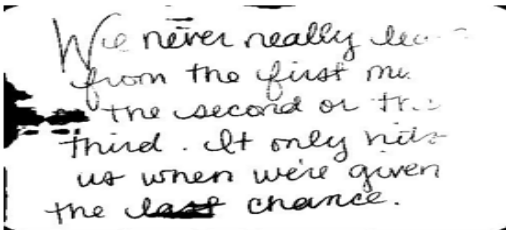 We never really
from the first
the second or
third. It only hits
us when we're given
the last chance.